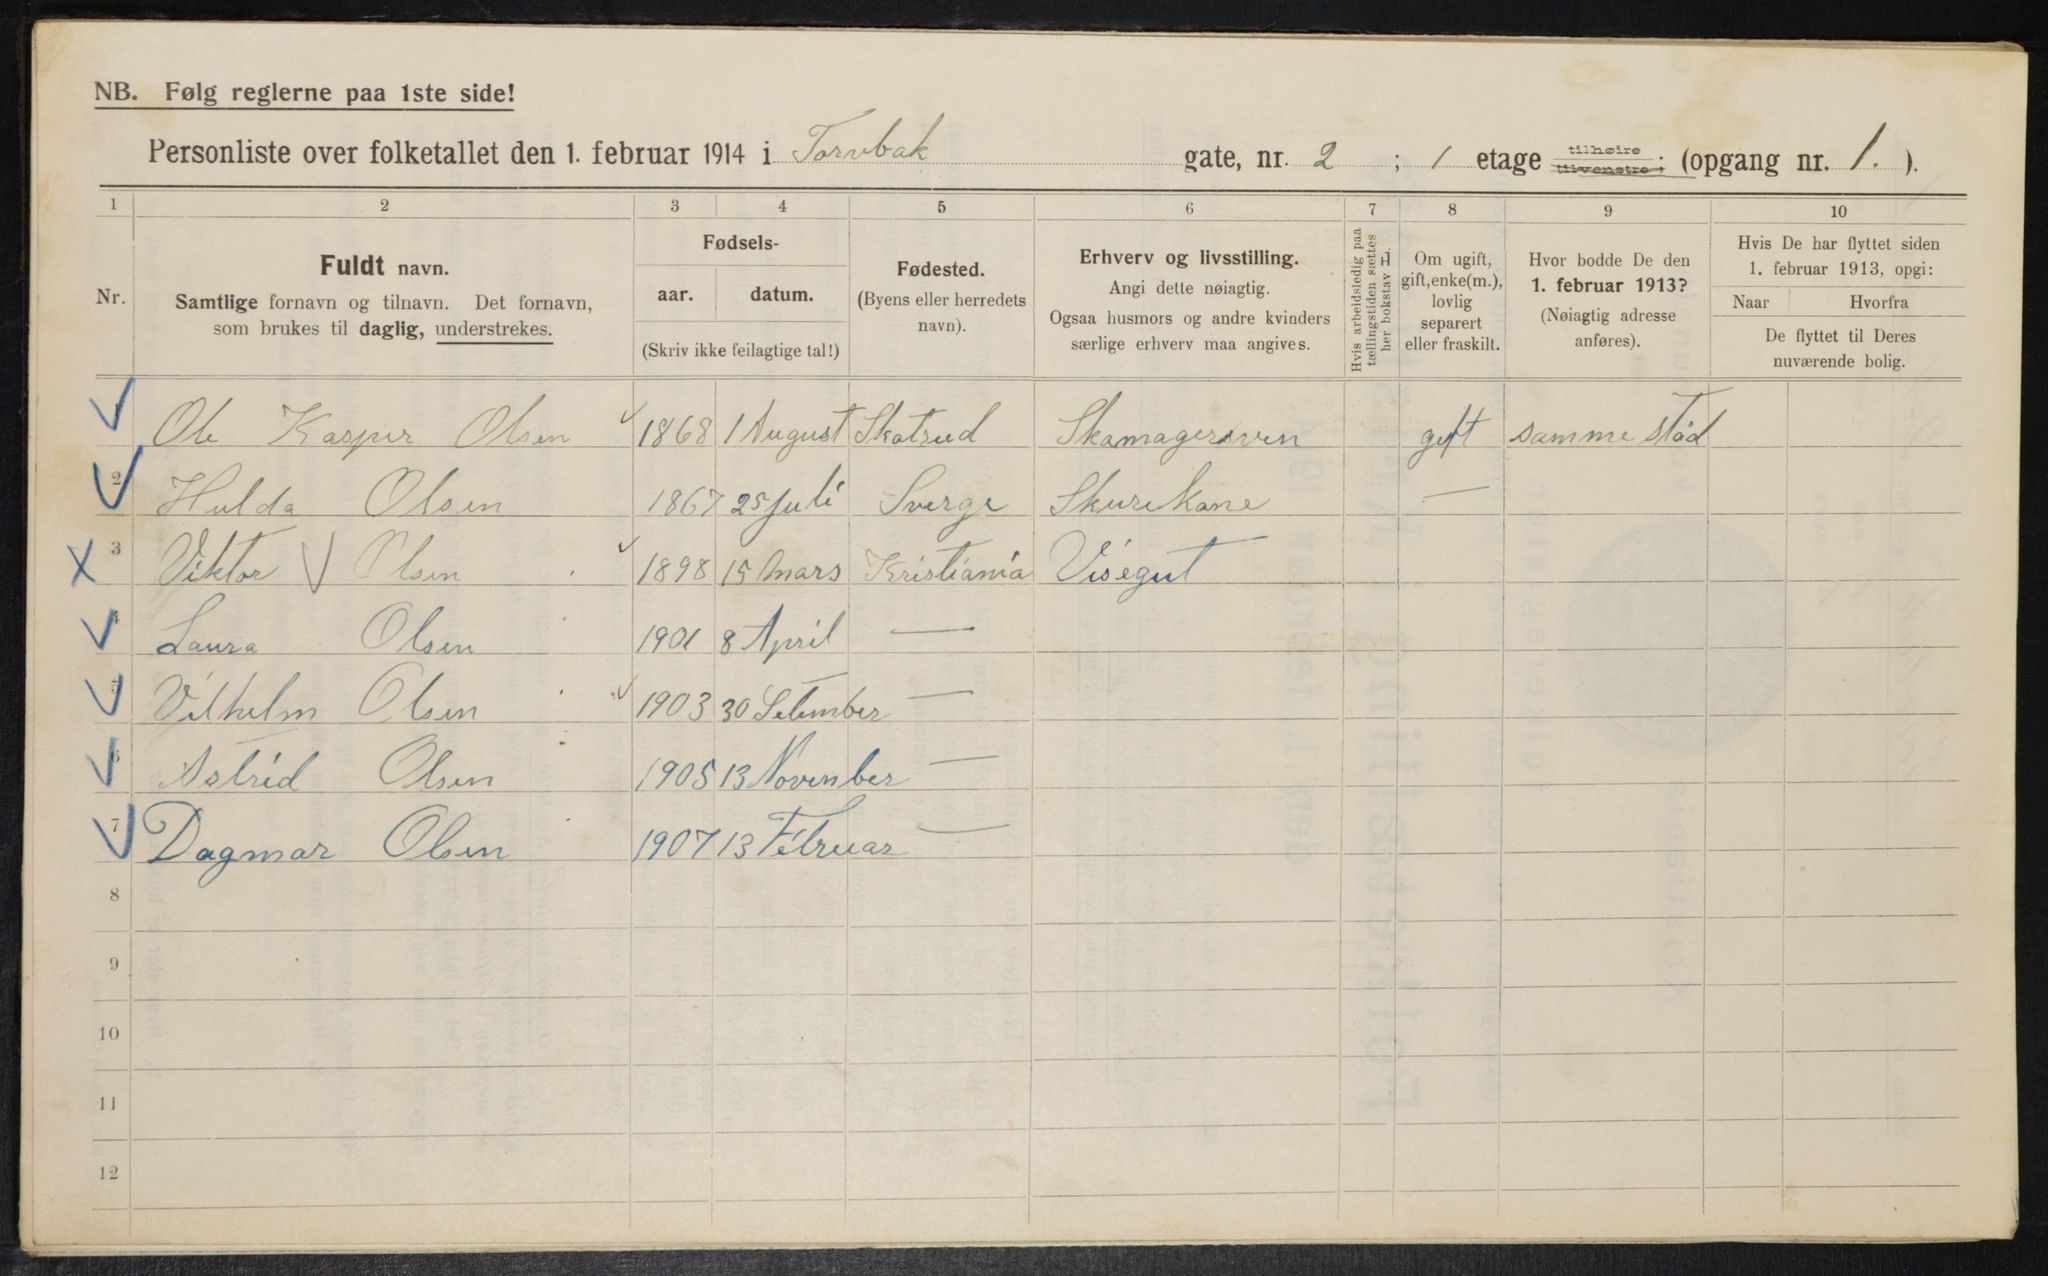 NB. Følg reglerne paa 1ste side!
Personliste over folketallet den 1. februar 1914 i Torvbak gate, nr. 2 ; 1 etage tilhøire tilvenstre; (opgang nr. 1. ).
1 2 3 4 5 6 7 8 9 10
Nr.
Fuldt navn.
Samtlige fornavn og tilnavn. Det fornavn,
som brukes til daglig, understrekes.
Fødsels-
aar. datum.
(Skriv ikke feilagtige tal!)
Fødested.
(Byens eller herredets
navn).
Erhverv og livsstilling.
Angi dette nøiagtig.
Ogsaa husmors og andre kvinders
særlige erhverv maa angives.
Hvis arbeidsledig paa
tællingstiden sættes
her bokstav L.
Om ugift,
gift, enke(m.),
lovlig
separert
eller fraskilt.
Hvor bodde De den
1. februar 1913?
(Nøiagtig adresse
anføres).
Hvis De har flyttet siden
1. februar 1913, opgi:
Naar Hvorfra
De flyttet til Deres
nuværende bolig.
1 Ole Kasper Olsen 1868 1 August Skotsrud Skomagersven gift samme stød
2 Hulda Olsen 1867 25 juli Sverge Skurekone —
3 Viktor Olsen 1898 15 Mars Kristiania Visegut
4 Laura Olsen 1901 8 April —
5 Vilhelm Olsen 1903 30 Setember —
6 Astrid Olsen 1905 13 November —
7 Dagmar Olsen 1907 13 Februar —
8
9
10
11
12